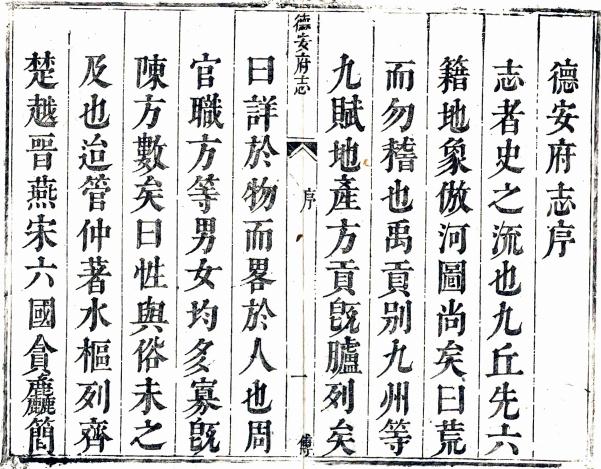 德安府志序
志者史之流也九丘先六
籍地象倣河圖尚矣曰荒
而勿稽也禹貢别九州等
九賦地產方貢既臚列矣
德安府志
序
一
曰詳於物而畧於人也周
官職方等男女均多寡既
陳方數矣曰性與俗未之
及也迨管仲著水樞列齊
楚越晉燕宋六國貪麤簡